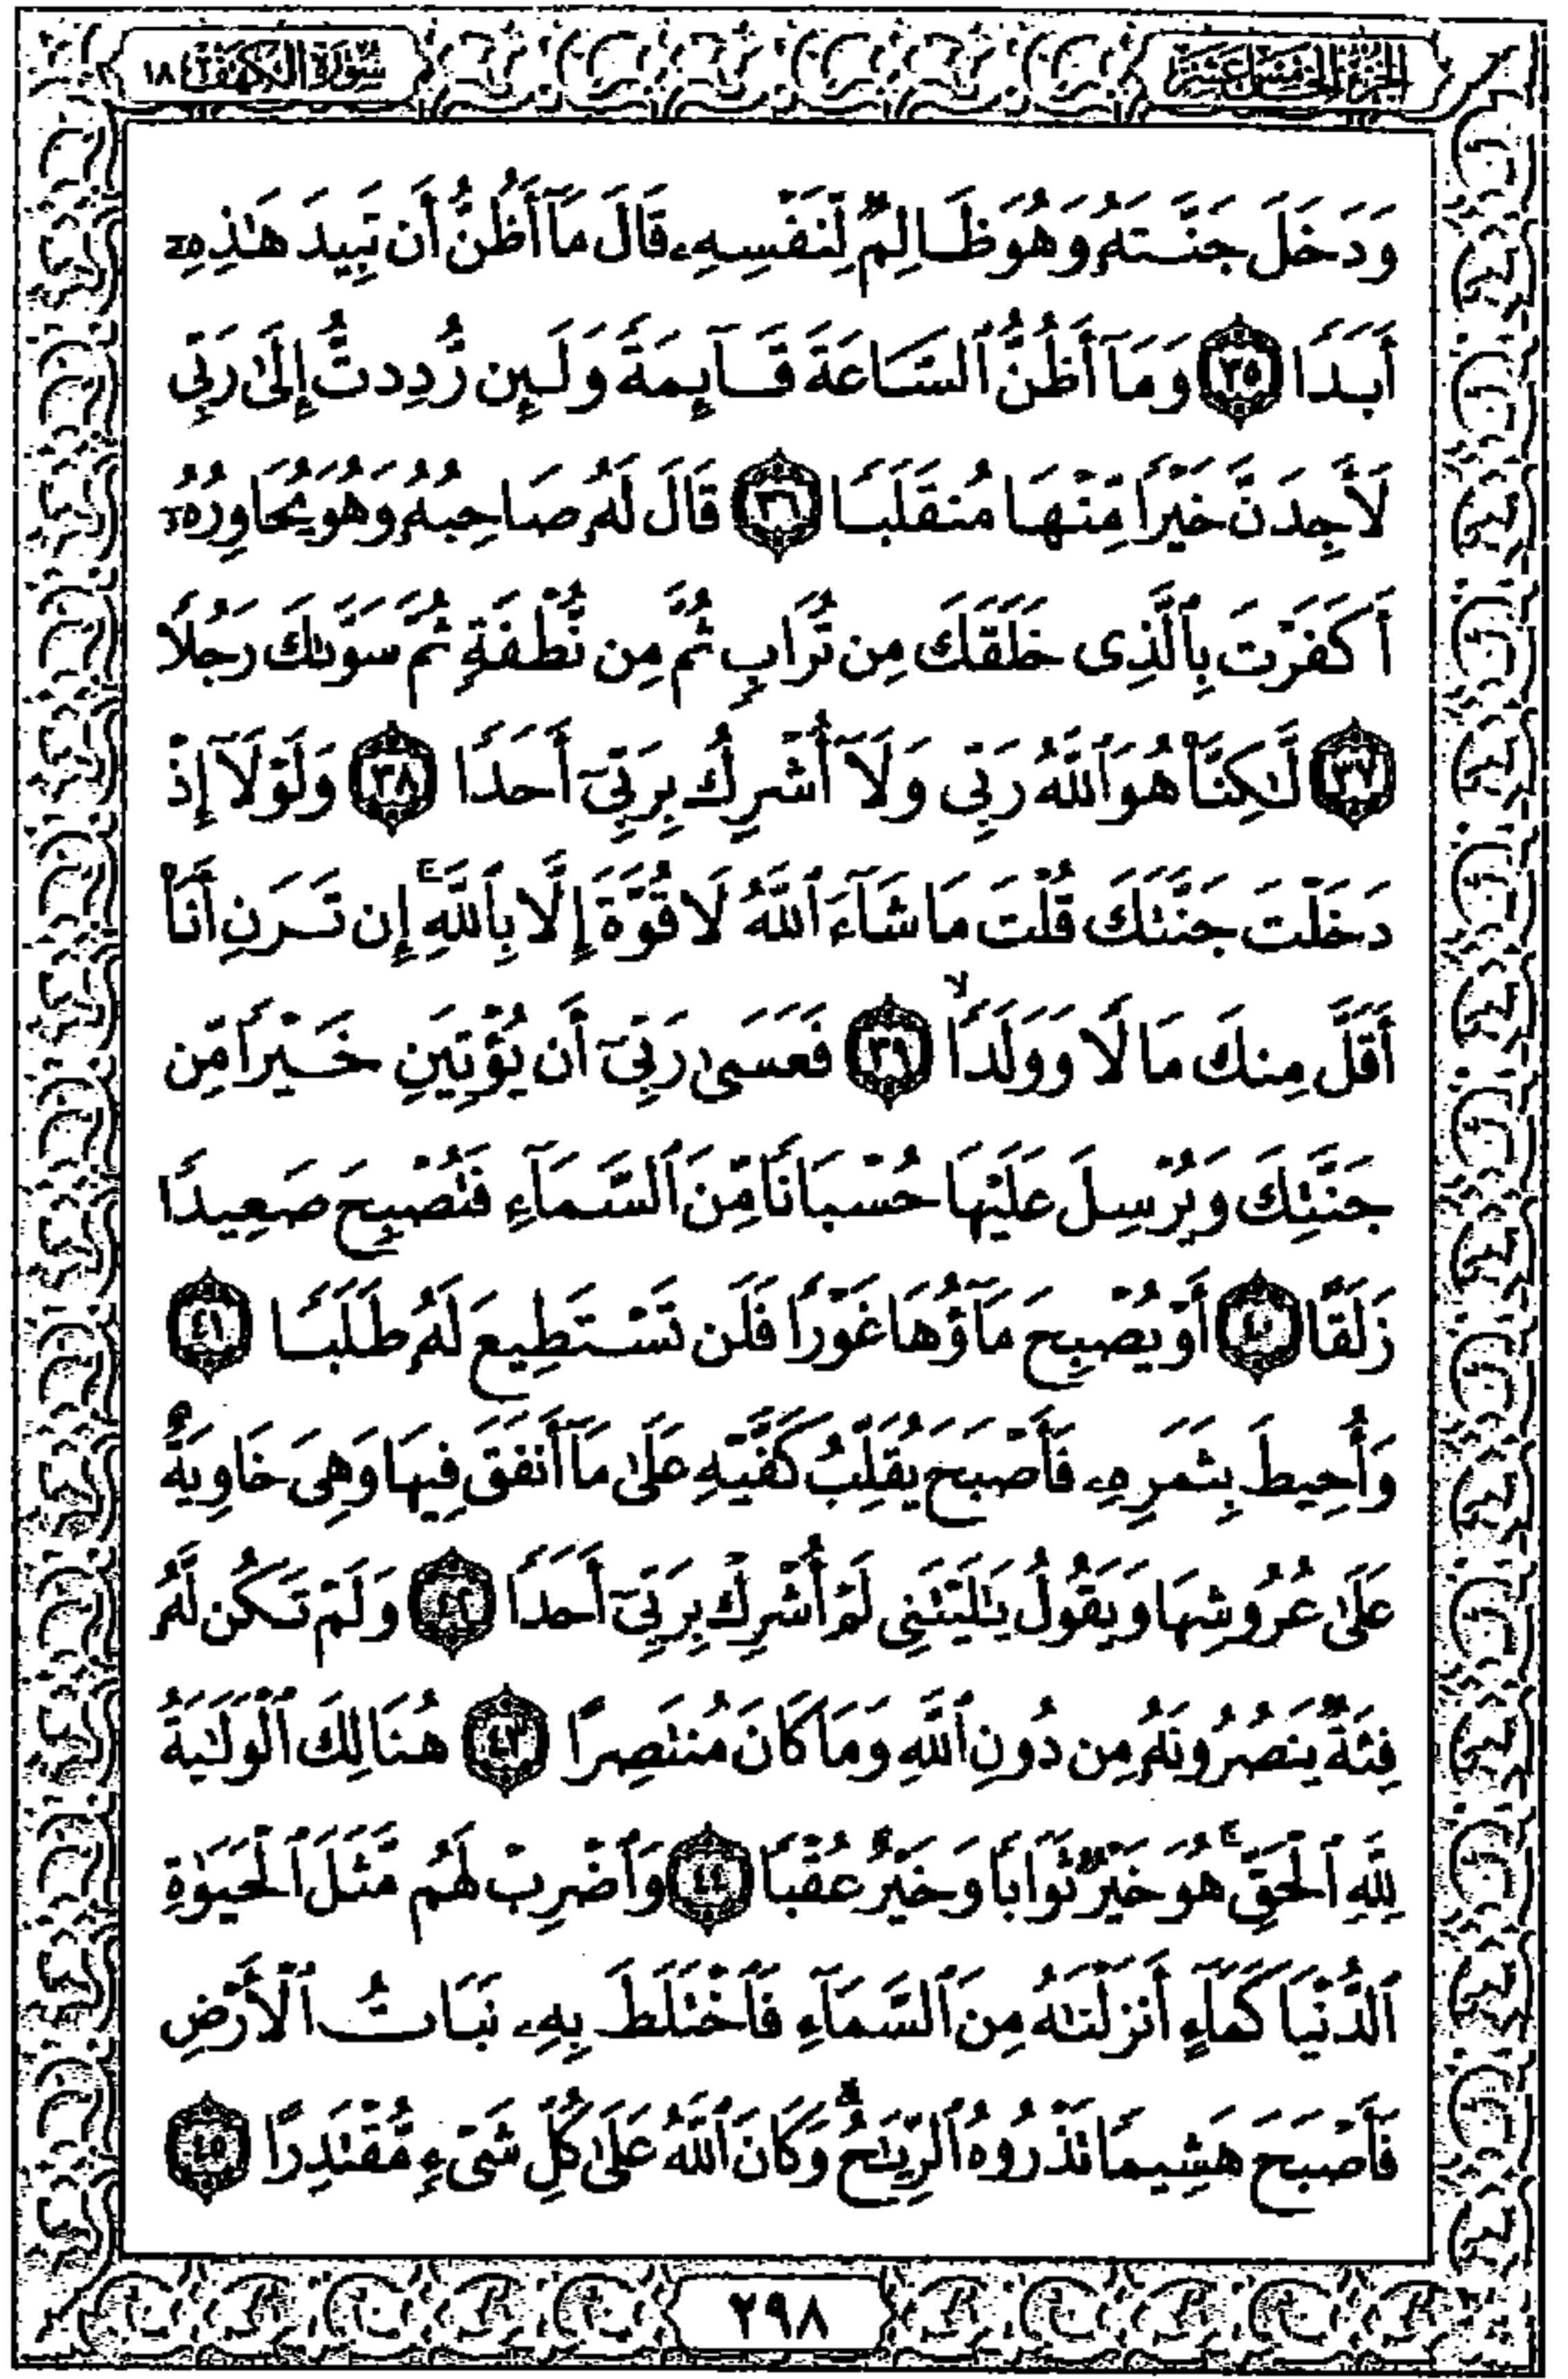 الجزء الخامس عشر
سورة الكهف ١٨
وَدَخَلَ جَنَّتَهُۥ وَهُوَ ظَالِمٌ لِّنَفْسِهِۦ قَالَ مَآ أَظُنُّ أَن تَبِيدَ هَٰذِهِۦٓ
أَبَدًا ٣٥ وَمَآ أَظُنُّ ٱلسَّاعَةَ قَآئِمَةً وَلَئِن رُّدِدتُّ إِلَىٰ رَبِّى
لَأَجِدَنَّ خَيْرًا مِّنْهَا مُنقَلَبًا ٣٦ قَالَ لَهُۥ صَاحِبُهُۥ وَهُوَ يُحَاوِرُهُۥٓ
أَكَفَرْتَ بِٱلَّذِى خَلَقَكَ مِن تُرَابٍ ثُمَّ مِن نُّطْفَةٍ ثُمَّ سَوَّىٰكَ رَجُلًا
٣٧ لَّٰكِنَّا۠ هُوَ ٱللَّهُ رَبِّى وَلَآ أُشْرِكُ بِرَبِّىٓ أَحَدًا ٣٨ وَلَوْلَآ إِذْ
دَخَلْتَ جَنَّتَكَ قُلْتَ مَا شَآءَ ٱللَّهُ لَا قُوَّةَ إِلَّا بِٱللَّهِ ۚ إِن تَرَنِ أَنَا۠
أَقَلَّ مِنكَ مَالًا وَوَلَدًا ۙ ٣٩ فَعَسَىٰ رَبِّىٓ أَن يُؤْتِيَنِ خَيْرًا مِّن
جَنَّتِكَ وَيُرْسِلَ عَلَيْهَا حُسْبَانًا مِّنَ ٱلسَّمَآءِ فَتُصْبِحَ صَعِيدًا
زَلَقًا ٤٠ أَوْ يُصْبِحَ مَآؤُهَا غَوْرًا فَلَن تَسْتَطِيعَ لَهُۥ طَلَبًا ٤١
وَأُحِيطَ بِثَمَرِهِۦ فَأَصْبَحَ يُقَلِّبُ كَفَّيْهِ عَلَىٰ مَآ أَنفَقَ فِيهَا وَهِىَ خَاوِيَةٌ
عَلَىٰ عُرُوشِهَا وَيَقُولُ يَٰلَيْتَنِى لَمْ أُشْرِكْ بِرَبِّىٓ أَحَدًا ٤٢ وَلَمْ تَكُن لَّهُۥ
فِئَةٌ يَنصُرُونَهُۥ مِن دُونِ ٱللَّهِ وَمَا كَانَ مُنتَصِرًا ٤٣ هُنَالِكَ ٱلْوَلَٰيَةُ
لِلَّهِ ٱلْحَقِّ ۚ هُوَ خَيْرٌ ثَوَابًا وَخَيْرٌ عُقْبًا ٤٤ وَٱضْرِبْ لَهُم مَّثَلَ ٱلْحَيَوٰةِ
ٱلدُّنْيَا كَمَآءٍ أَنزَلْنَٰهُ مِنَ ٱلسَّمَآءِ فَٱخْتَلَطَ بِهِۦ نَبَاتُ ٱلْأَرْضِ
فَأَصْبَحَ هَشِيمًا تَذْرُوهُ ٱلرِّيَٰحُ ۗ وَكَانَ ٱللَّهُ عَلَىٰ كُلِّ شَىْءٍ مُّقْتَدِرًا ٤٥
٢٩٨